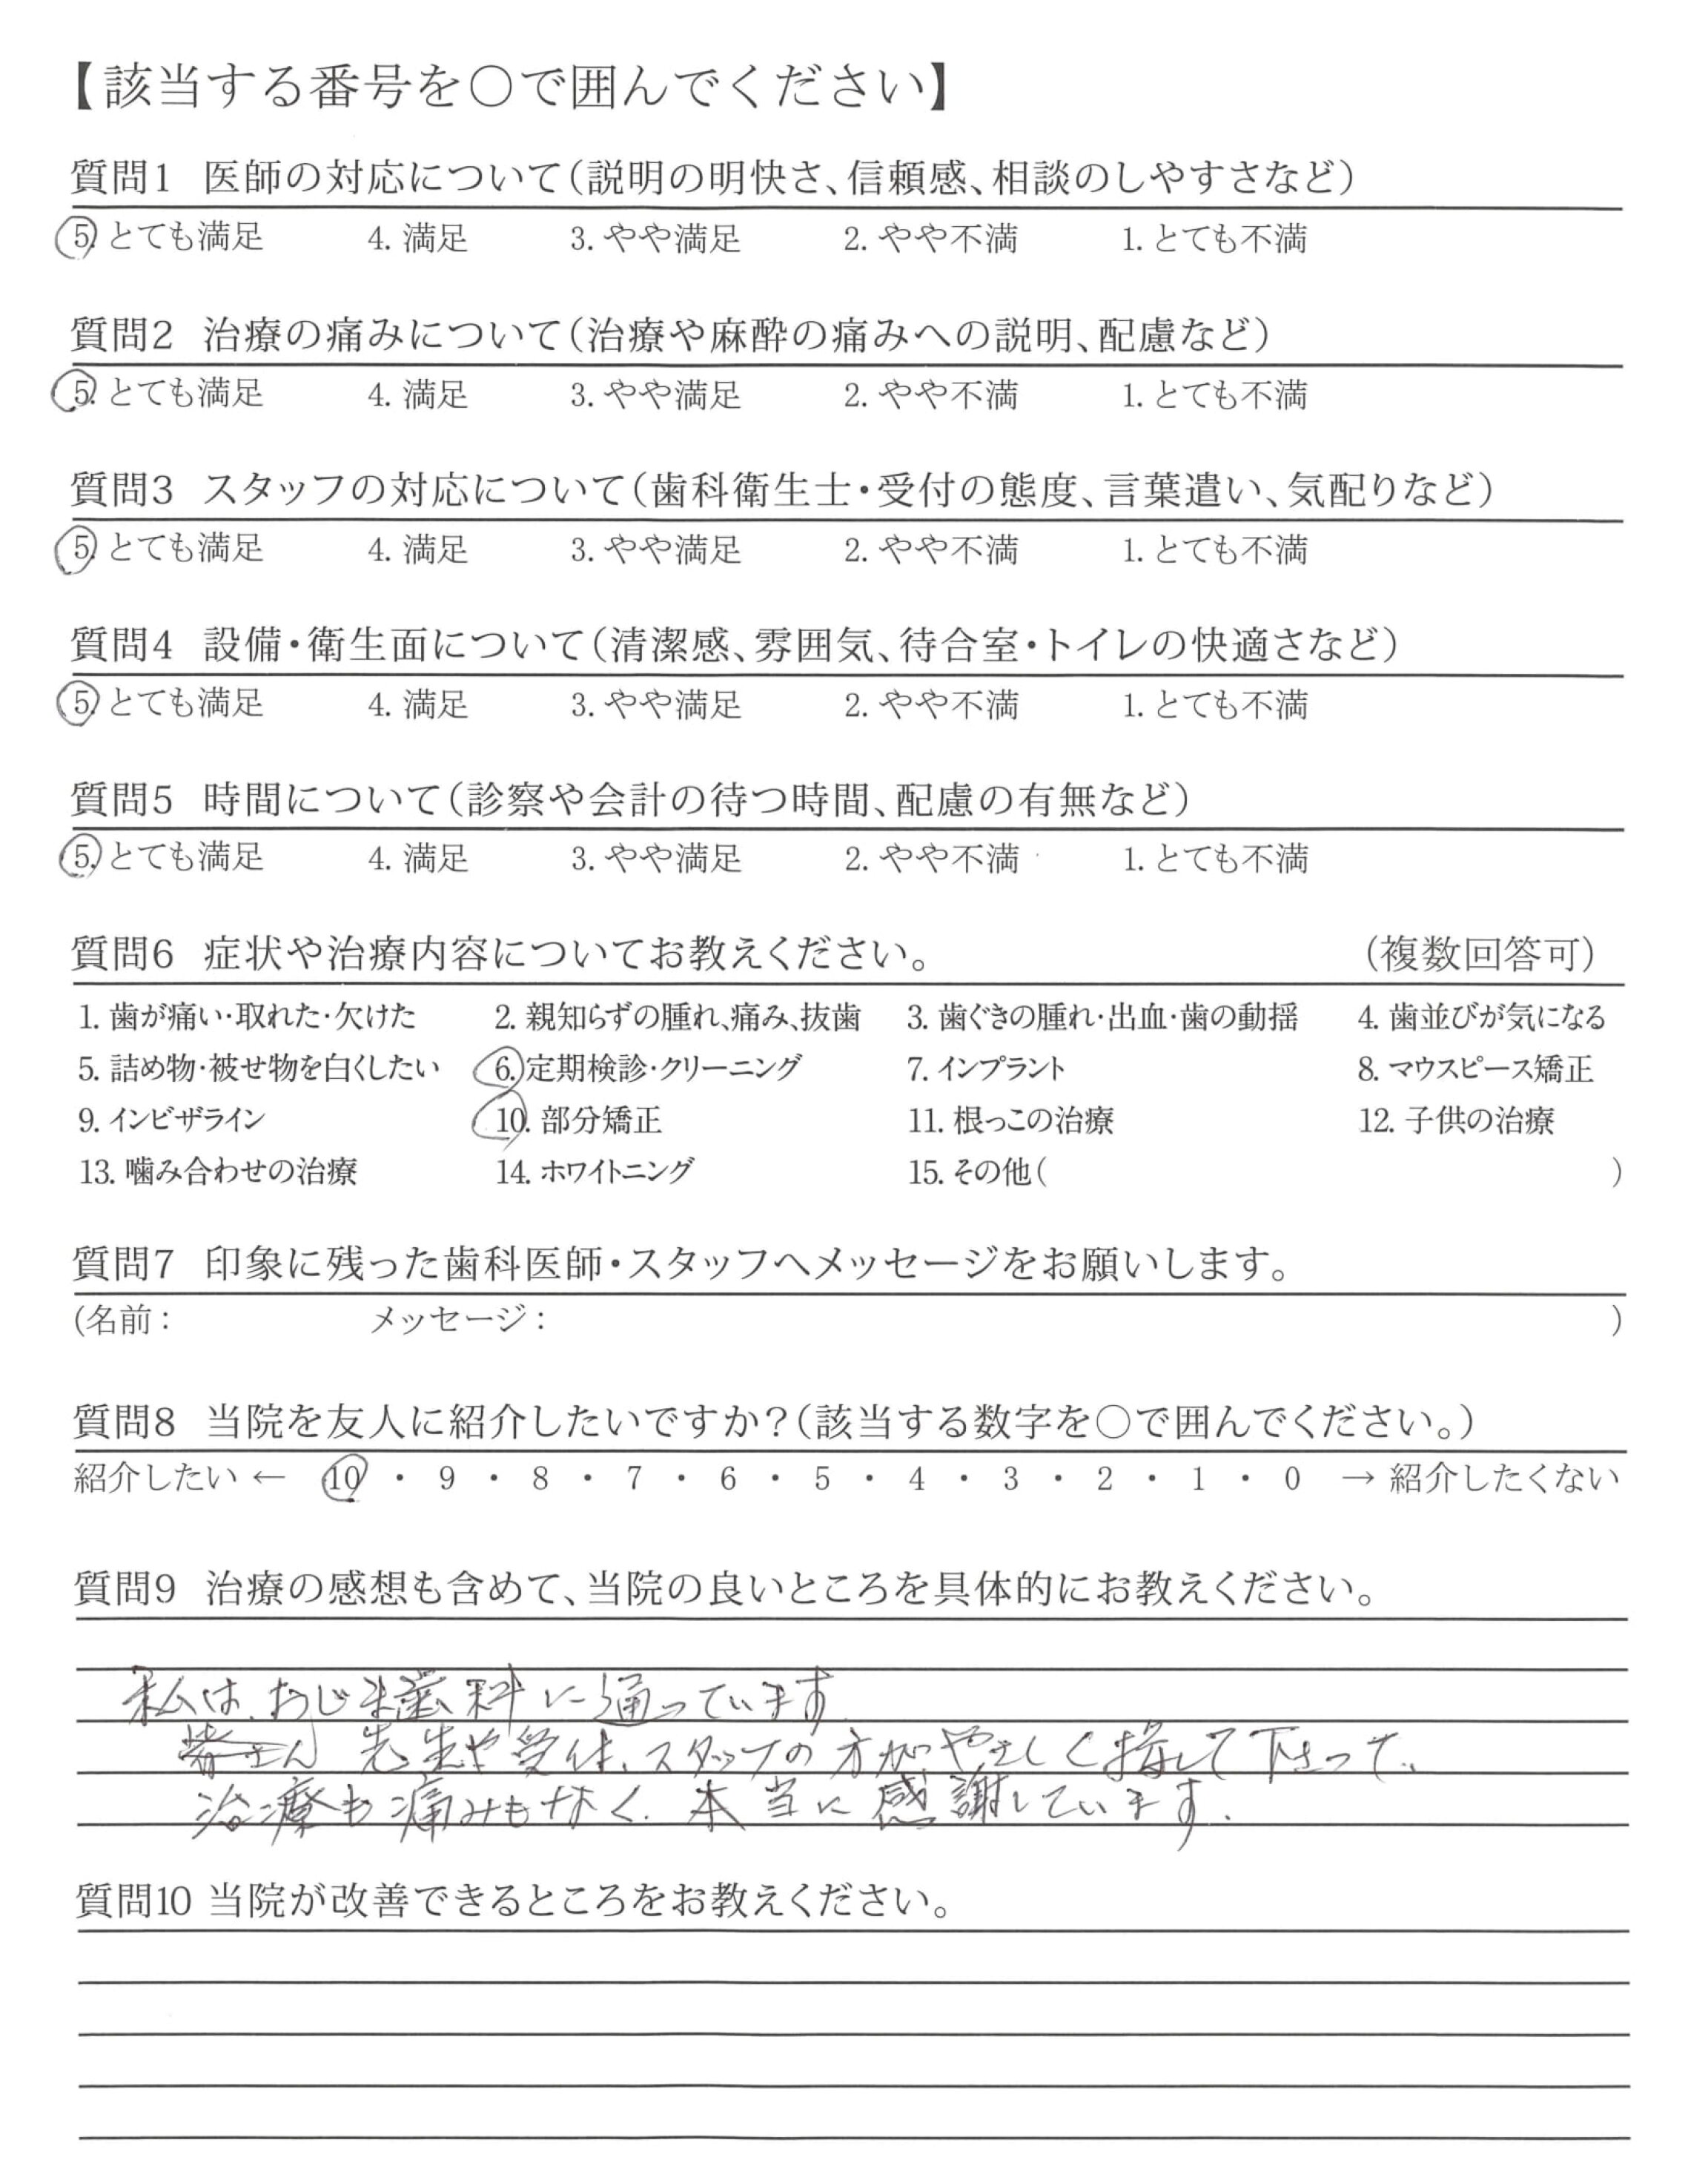 【該当する番号を○で囲んでください】
質問1 医師の対応について(説明の明快さ、信頼感、相談のしやすさなど)
5. とても満足 4. 満足 3. やや満足 2. やや不満 1. とても不満
質問2 治療の痛みについて(治療や麻酔の痛みへの説明、配慮など)
5. とても満足 4. 満足 3. やや満足 2. やや不満 1. とても不満
質問3 スタッフの対応について(歯科衛生士・受付の態度、言葉遣い、気配りなど)
5. とても満足 4. 満足 3. やや満足 2. やや不満 1. とても不満
質問4 設備・衛生面について(清潔感、雰囲気、待合室・トイレの快適さなど)
5. とても満足 4. 満足 3. やや満足 2. やや不満 1. とても不満
質問5 時間について(診察や会計の待つ時間、配慮の有無など)
5. とても満足 4. 満足 3. やや満足 2. やや不満 1. とても不満
質問6 症状や治療内容についてお教えください。 (複数回答可)
1. 歯が痛い・取れた・欠けた 2. 親知らずの腫れ、痛み、抜歯 3. 歯ぐきの腫れ・出血・歯の動揺 4. 歯並びが気になる
5. 詰め物・被せ物を白くしたい 6. 定期検診・クリーニング 7. インプラント 8. マウスピース矯正
9. インビザライン 10. 部分矯正 11. 根っこの治療 12. 子供の治療
13. 噛み合わせの治療 14. ホワイトニング 15. その他( )
質問7 印象に残った歯科医師・スタッフへメッセージをお願いします。
(名前: メッセージ: )
質問8 当院を友人に紹介したいですか?(該当する数字を○で囲んでください。)
紹介したい ← 10 ・ 9 ・ 8 ・ 7 ・ 6 ・ 5 ・ 4 ・ 3 ・ 2 ・ 1 ・ 0 → 紹介したくない
質問9 治療の感想も含めて、当院の良いところを具体的にお教えください。
私は、おじま歯科に通っています
皆さん 先生や受付、スタッフの方がやさしく接して下さって、
治療も痛みもなく、本当に感謝しています.
質問10 当院が改善できるところをお教えください。